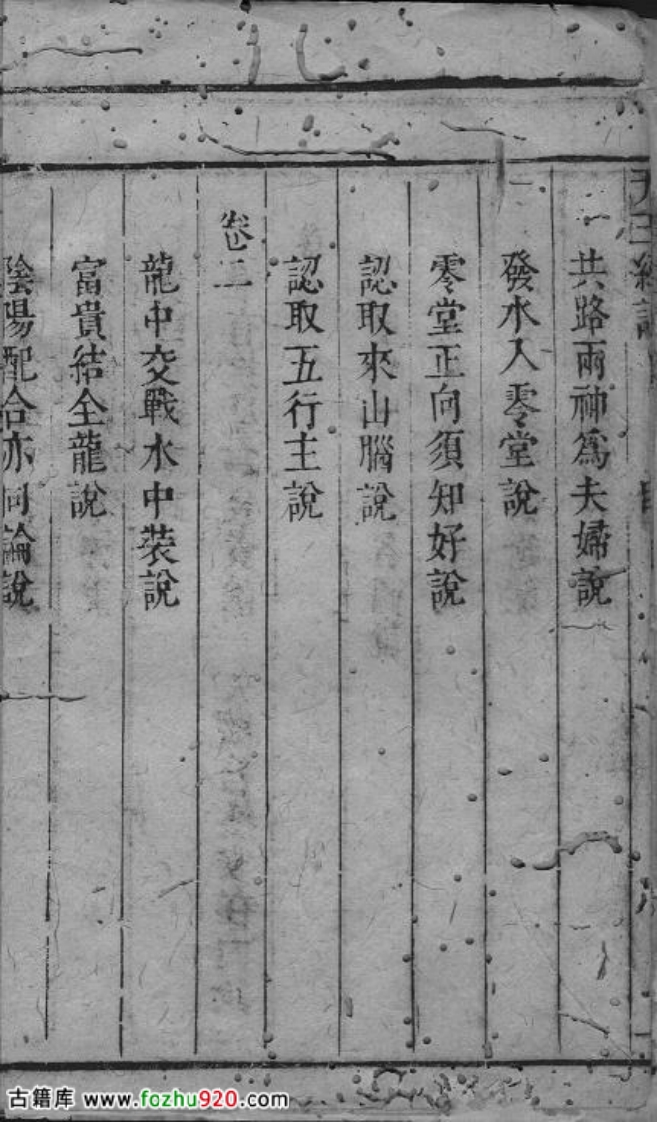 天玉經說
共路兩神爲夫婦說
發水入零堂說
零堂正向須知好說
認取來山腦說
認取五行主說
卷二
龍中交戰水中裝說
富貴結全龍說
陰陽配合亦同論說
古籍库 www.fozhu920.com